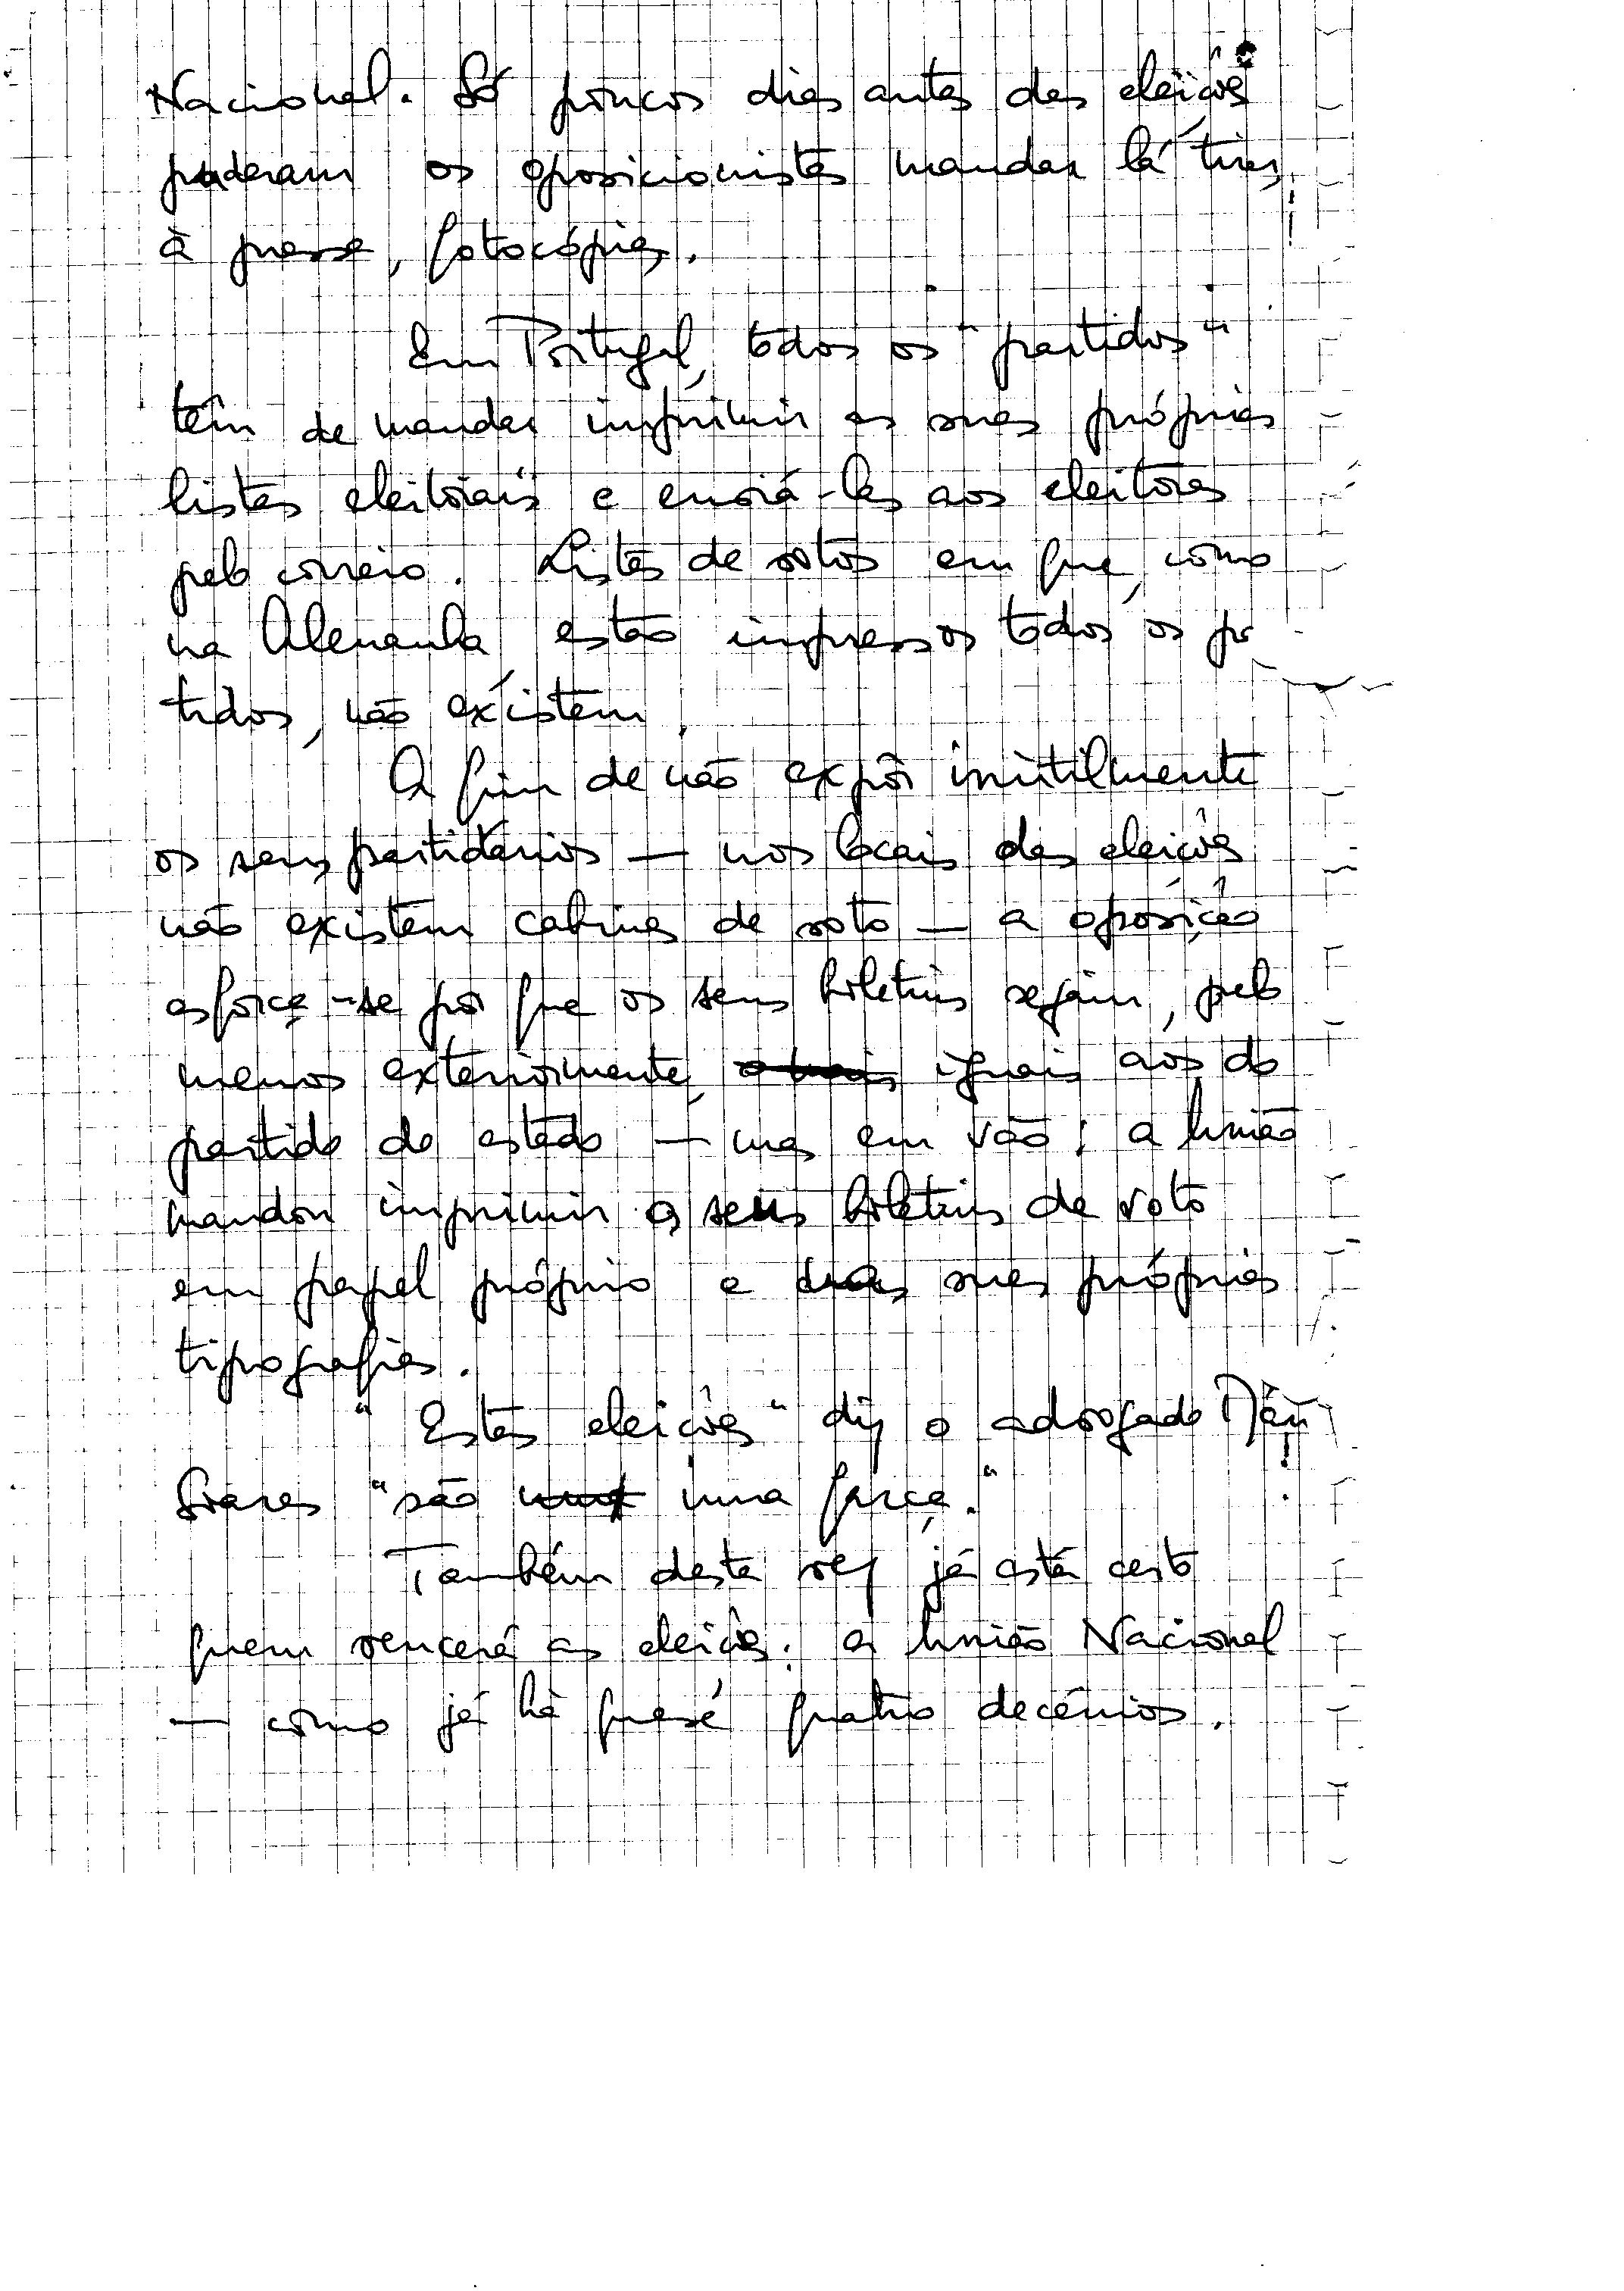 Nacional. Só poucos dias antes das eleições
puderam os oposicionistas mandar lá tirar,
à pressa, fotocópias.
Em Portugal, todos os "partidos"
têm de mandar imprimir as suas próprias
listas eleitorais e enviá-las aos eleitores
pelo correio. Listas de votos em que, como
na Alemanha, estão impressos todos os par
tidos, não existem.
A fim de não expôr inùtilmente
os seus partidários — nos locais das eleições
não existem cabines de voto — a oposição
esforça-se por que os seus boletins sejam, pelo
menos exteriormente, iguais aos do
partido do estado — mas em vão: a União
mandou imprimir os seus boletins de voto
em papel próprio e nas suas próprias
tipografias.
"Estas eleições" diz o advogado Mário
Soares "são uma farça."
Também desta vez já está certo
quem vencerá as eleições: a União Nacional
— como já há quase quatro decénios.